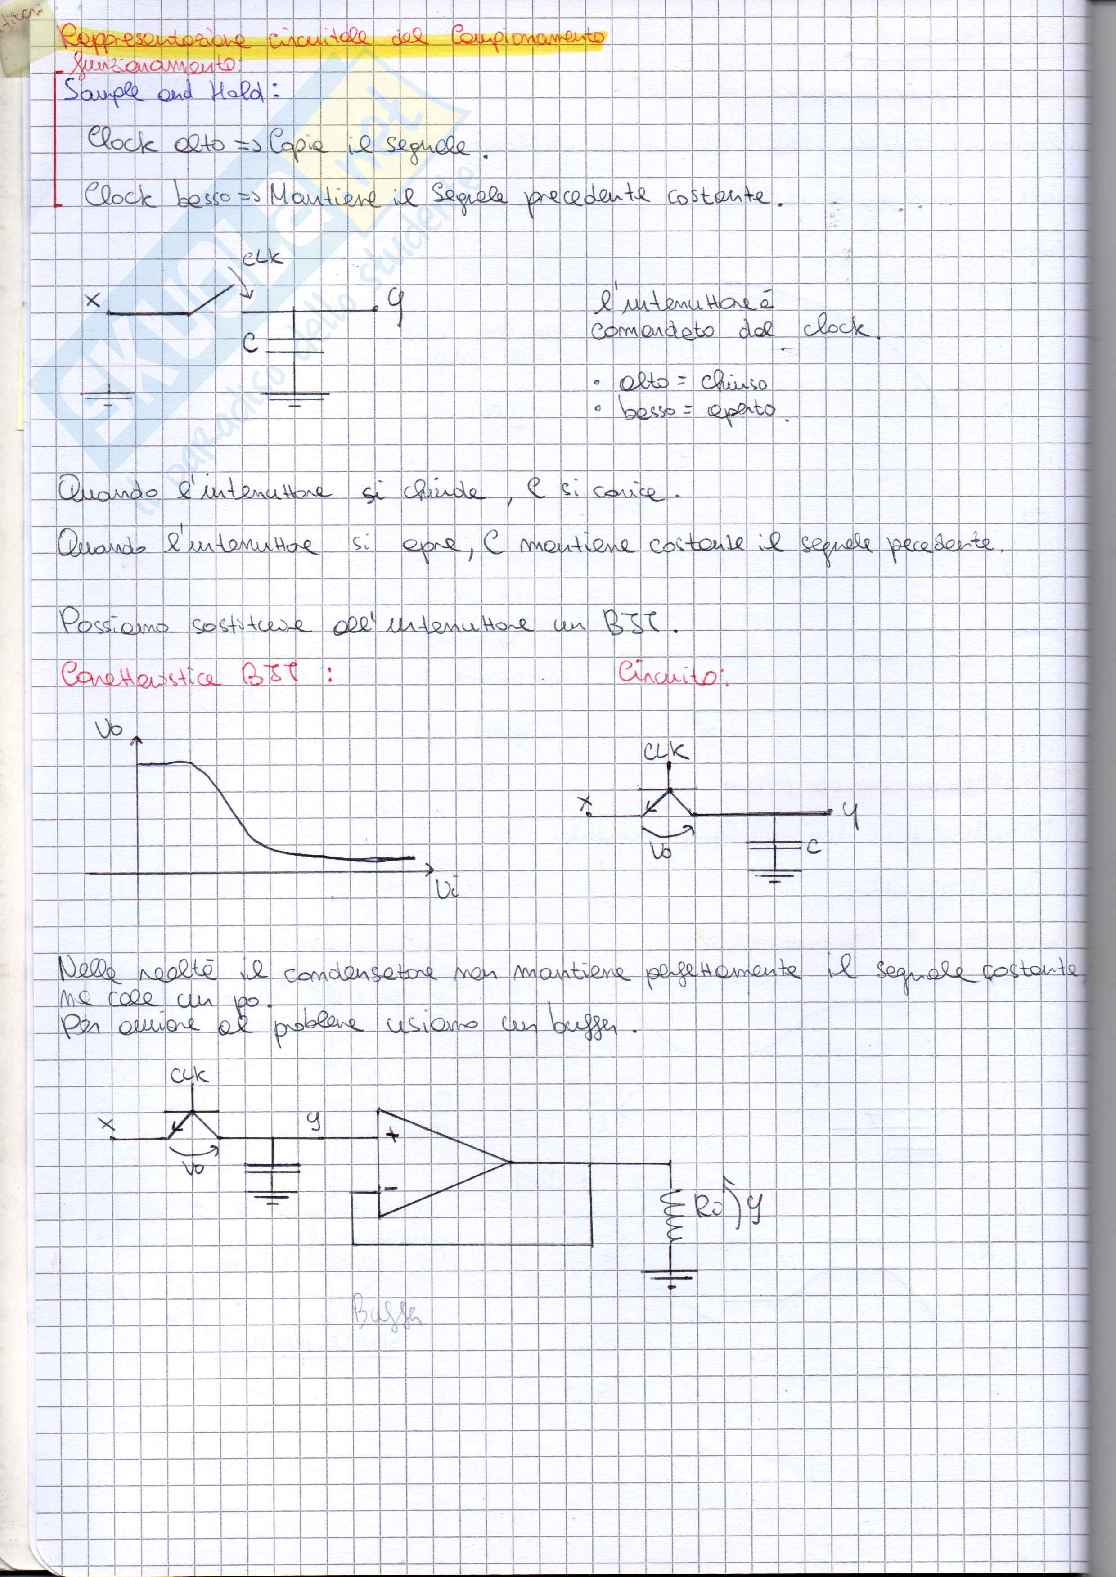 Rappresentazione circuitale del Campionamento
funzionamento:
Sample and Hold:
Clock alto => Copia il segnale.
Clock basso => Mantiene il segnale precedente costante.
CLK
x
y
C
l'interruttore è
comandato dal clock.
• alto = chiuso
• basso = aperto.
Quando l'interruttore si chiude, C si carica.
Quando l'interruttore si apre, C mantiene costante il segnale pecedente.
Possiamo sostituire all'interruttore un BJT.
Caratteristica BJT :
Circuito:
Vo
Vi
CLK
x
Vo
y
C
Nella realtà il condensatore non mantiene perfettamente il segnale costante,
ma cala un po.
Per ovviare al problema usiamo un buffer.
CLK
x
Vo
y
+
-
Ri
y
Buffer
SKUOLA.net
il paradiso dello studente